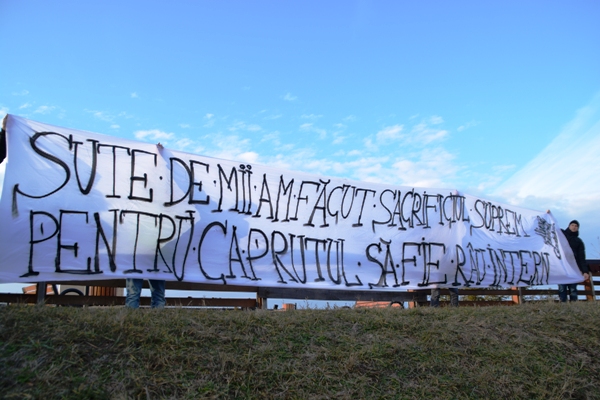 SUTE·DE·MII·AM·FĂCUT·SACRIFICIUL SUPREM
PENTRU·CA PRUTUL·SĂ·FIE·RÂU INTERN